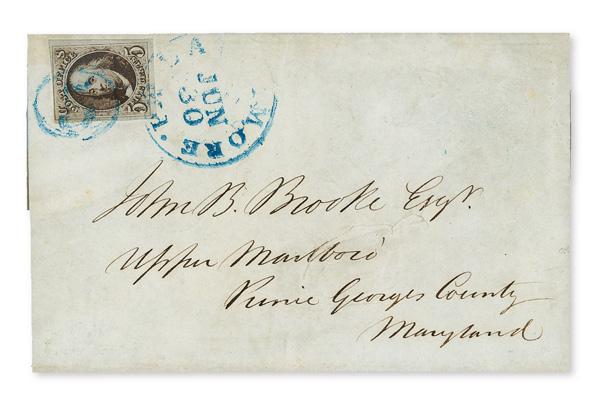 JUN
30
MORE
John B. Brooke Esqr.
Upper Marlboro'
Prince Georges County
Maryland